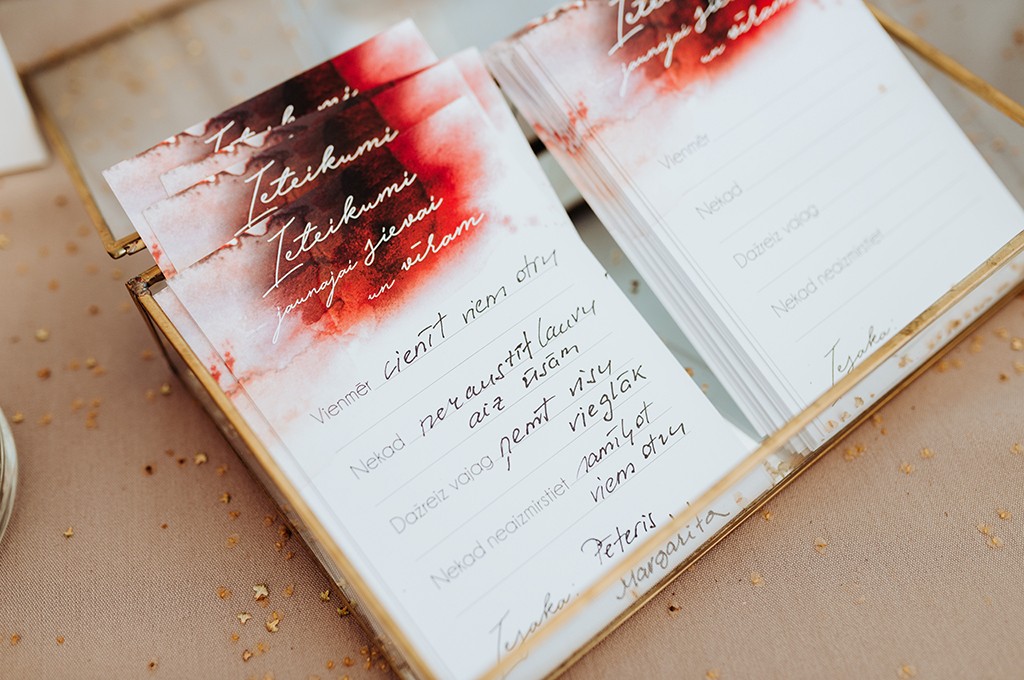 Ieteikumi
Ieteikumi
jaunajai sievai
un vīram
Vienmēr cienīt viem otru
Nekad neraustīt Lauvu
aiz ūsām
Dažreiz vajag ņemt visu
vieglāk
Nekad neaizmirstiet samīļot
viem otru
Pēteris,
Iesaka: Margarita
jaunajai sievai
un vīram
Vienmēr
Nekad
Dažreiz vajag
Nekad neaizmirstiet
Iesaka: